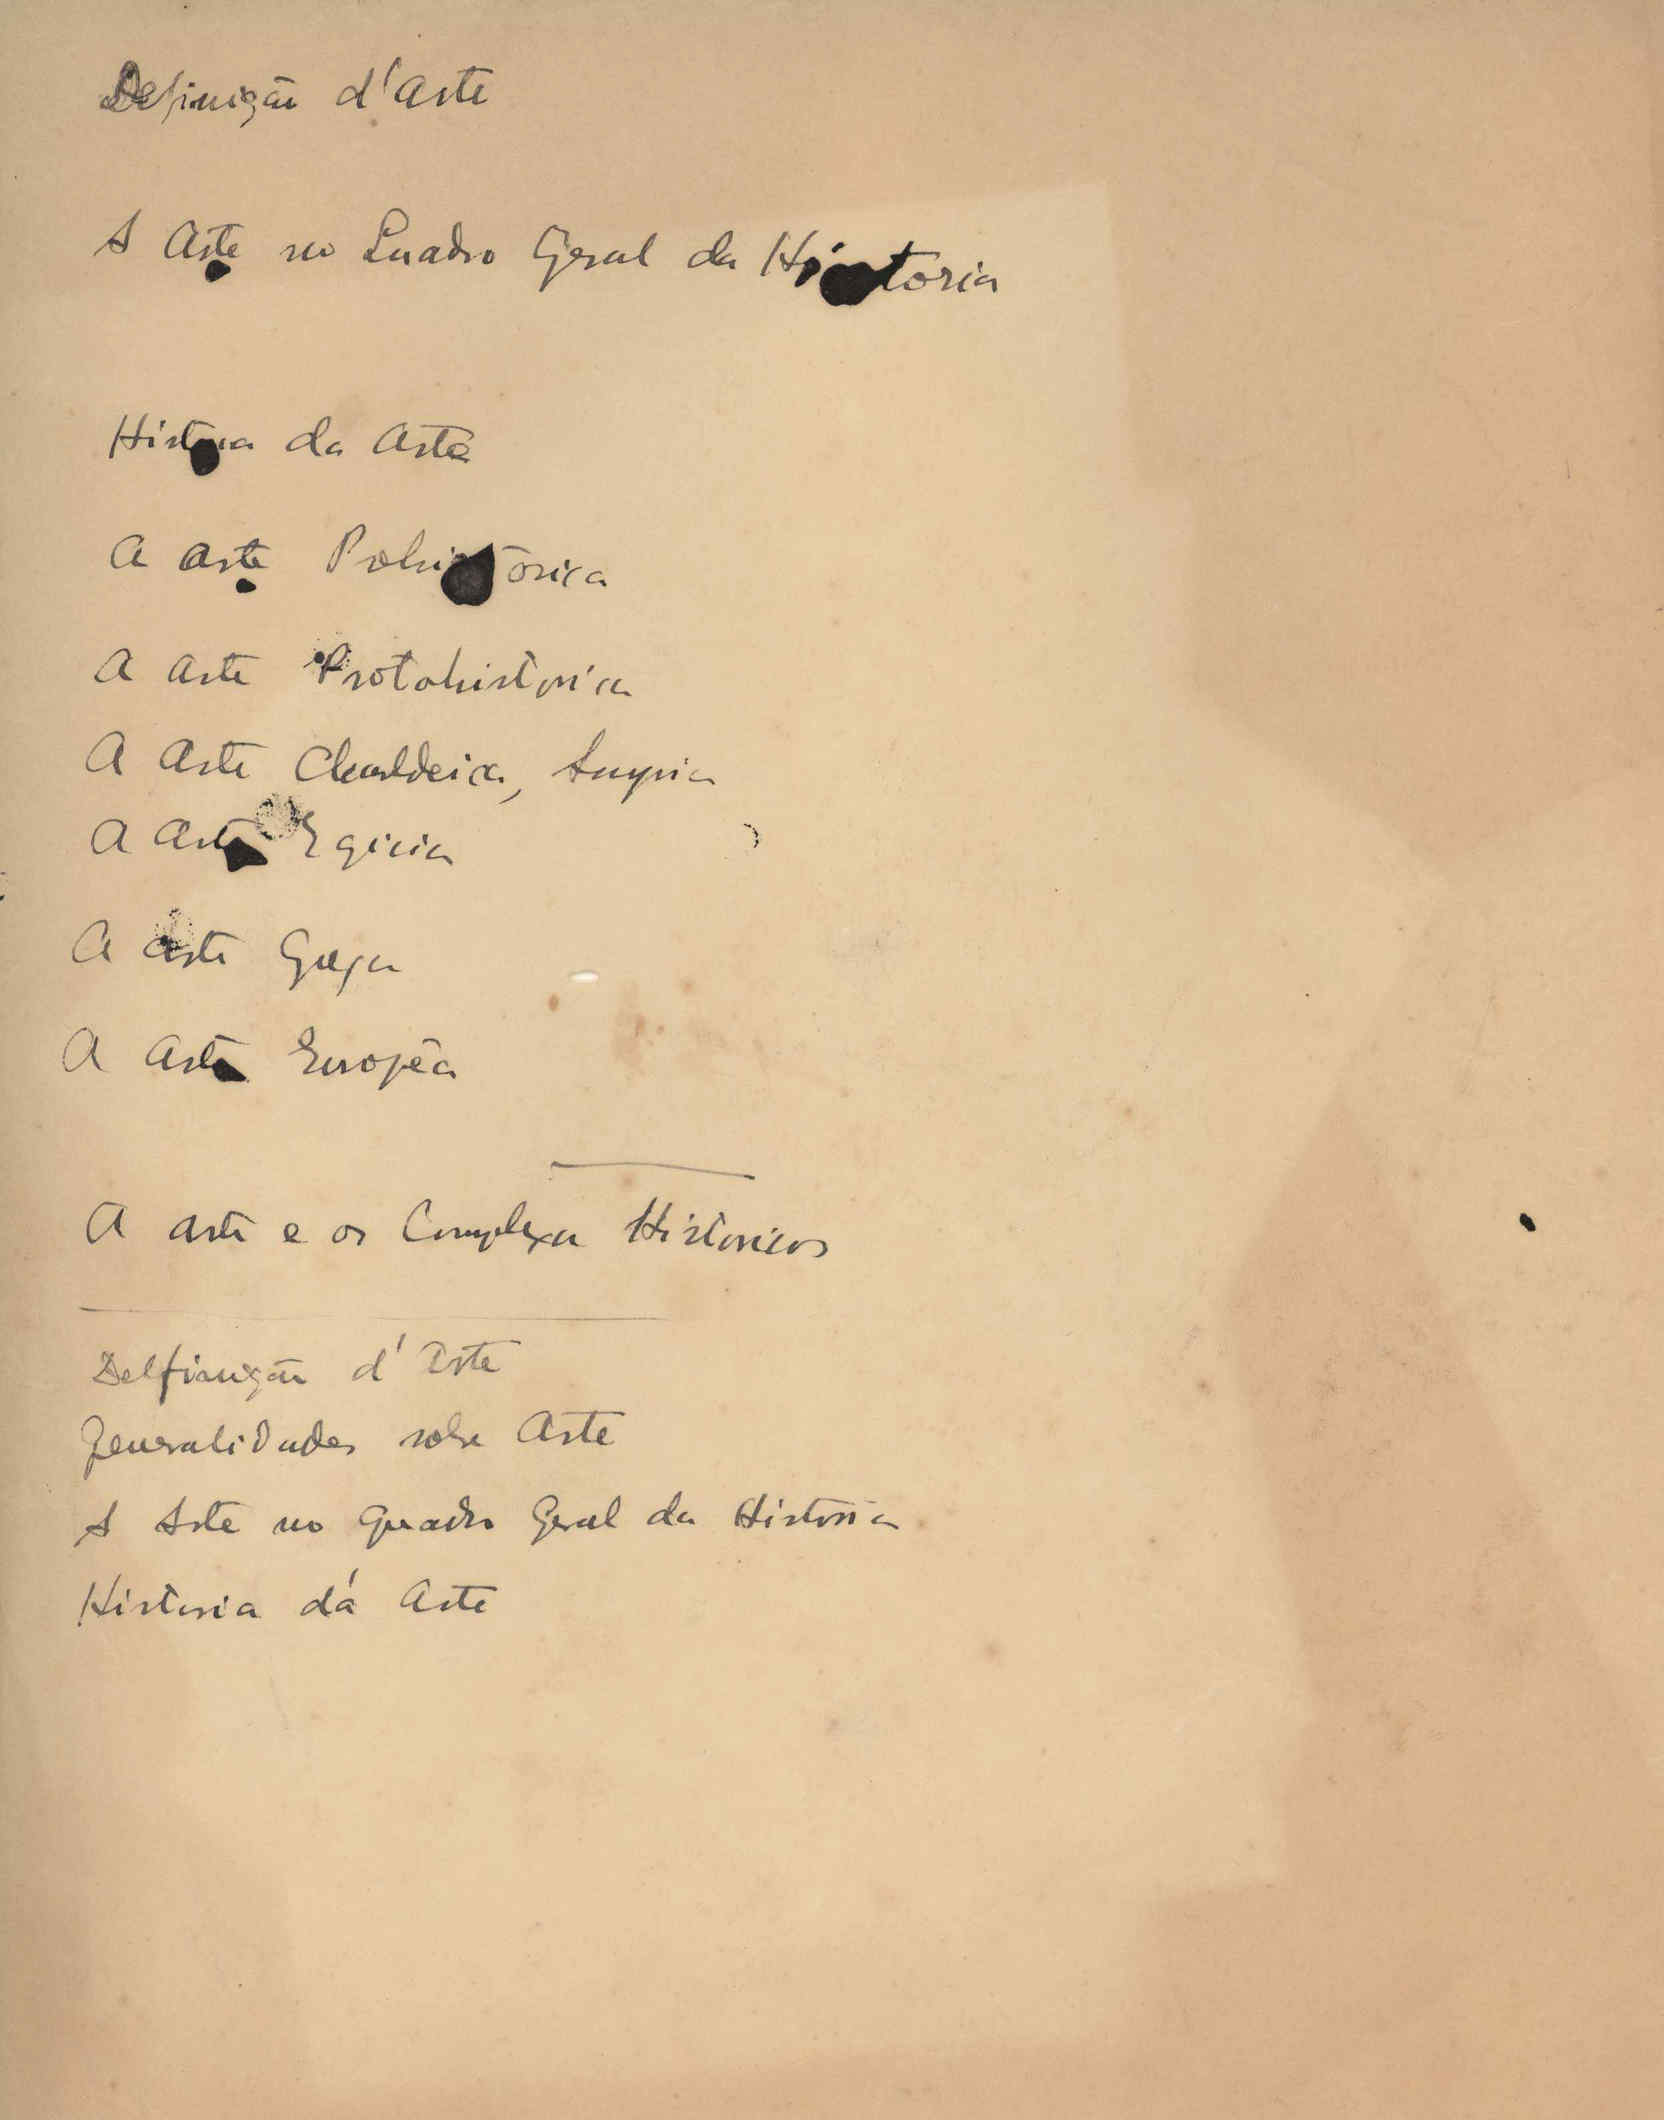 Definição d'Arte
A Arte no Quadro Geral da Historia
Historia da Arte
A Arte Prehistórica
A Arte Protohistorica
A Arte Chaldeica, Assyria
A Arte Egicia
A Arte Grega
A Arte Européa
A arte e os Complexos Historicos
Delfinição d'Arte
Generalidades sobre Arte
A Arte no Quadro Geral da Historia
Historia dá Arte